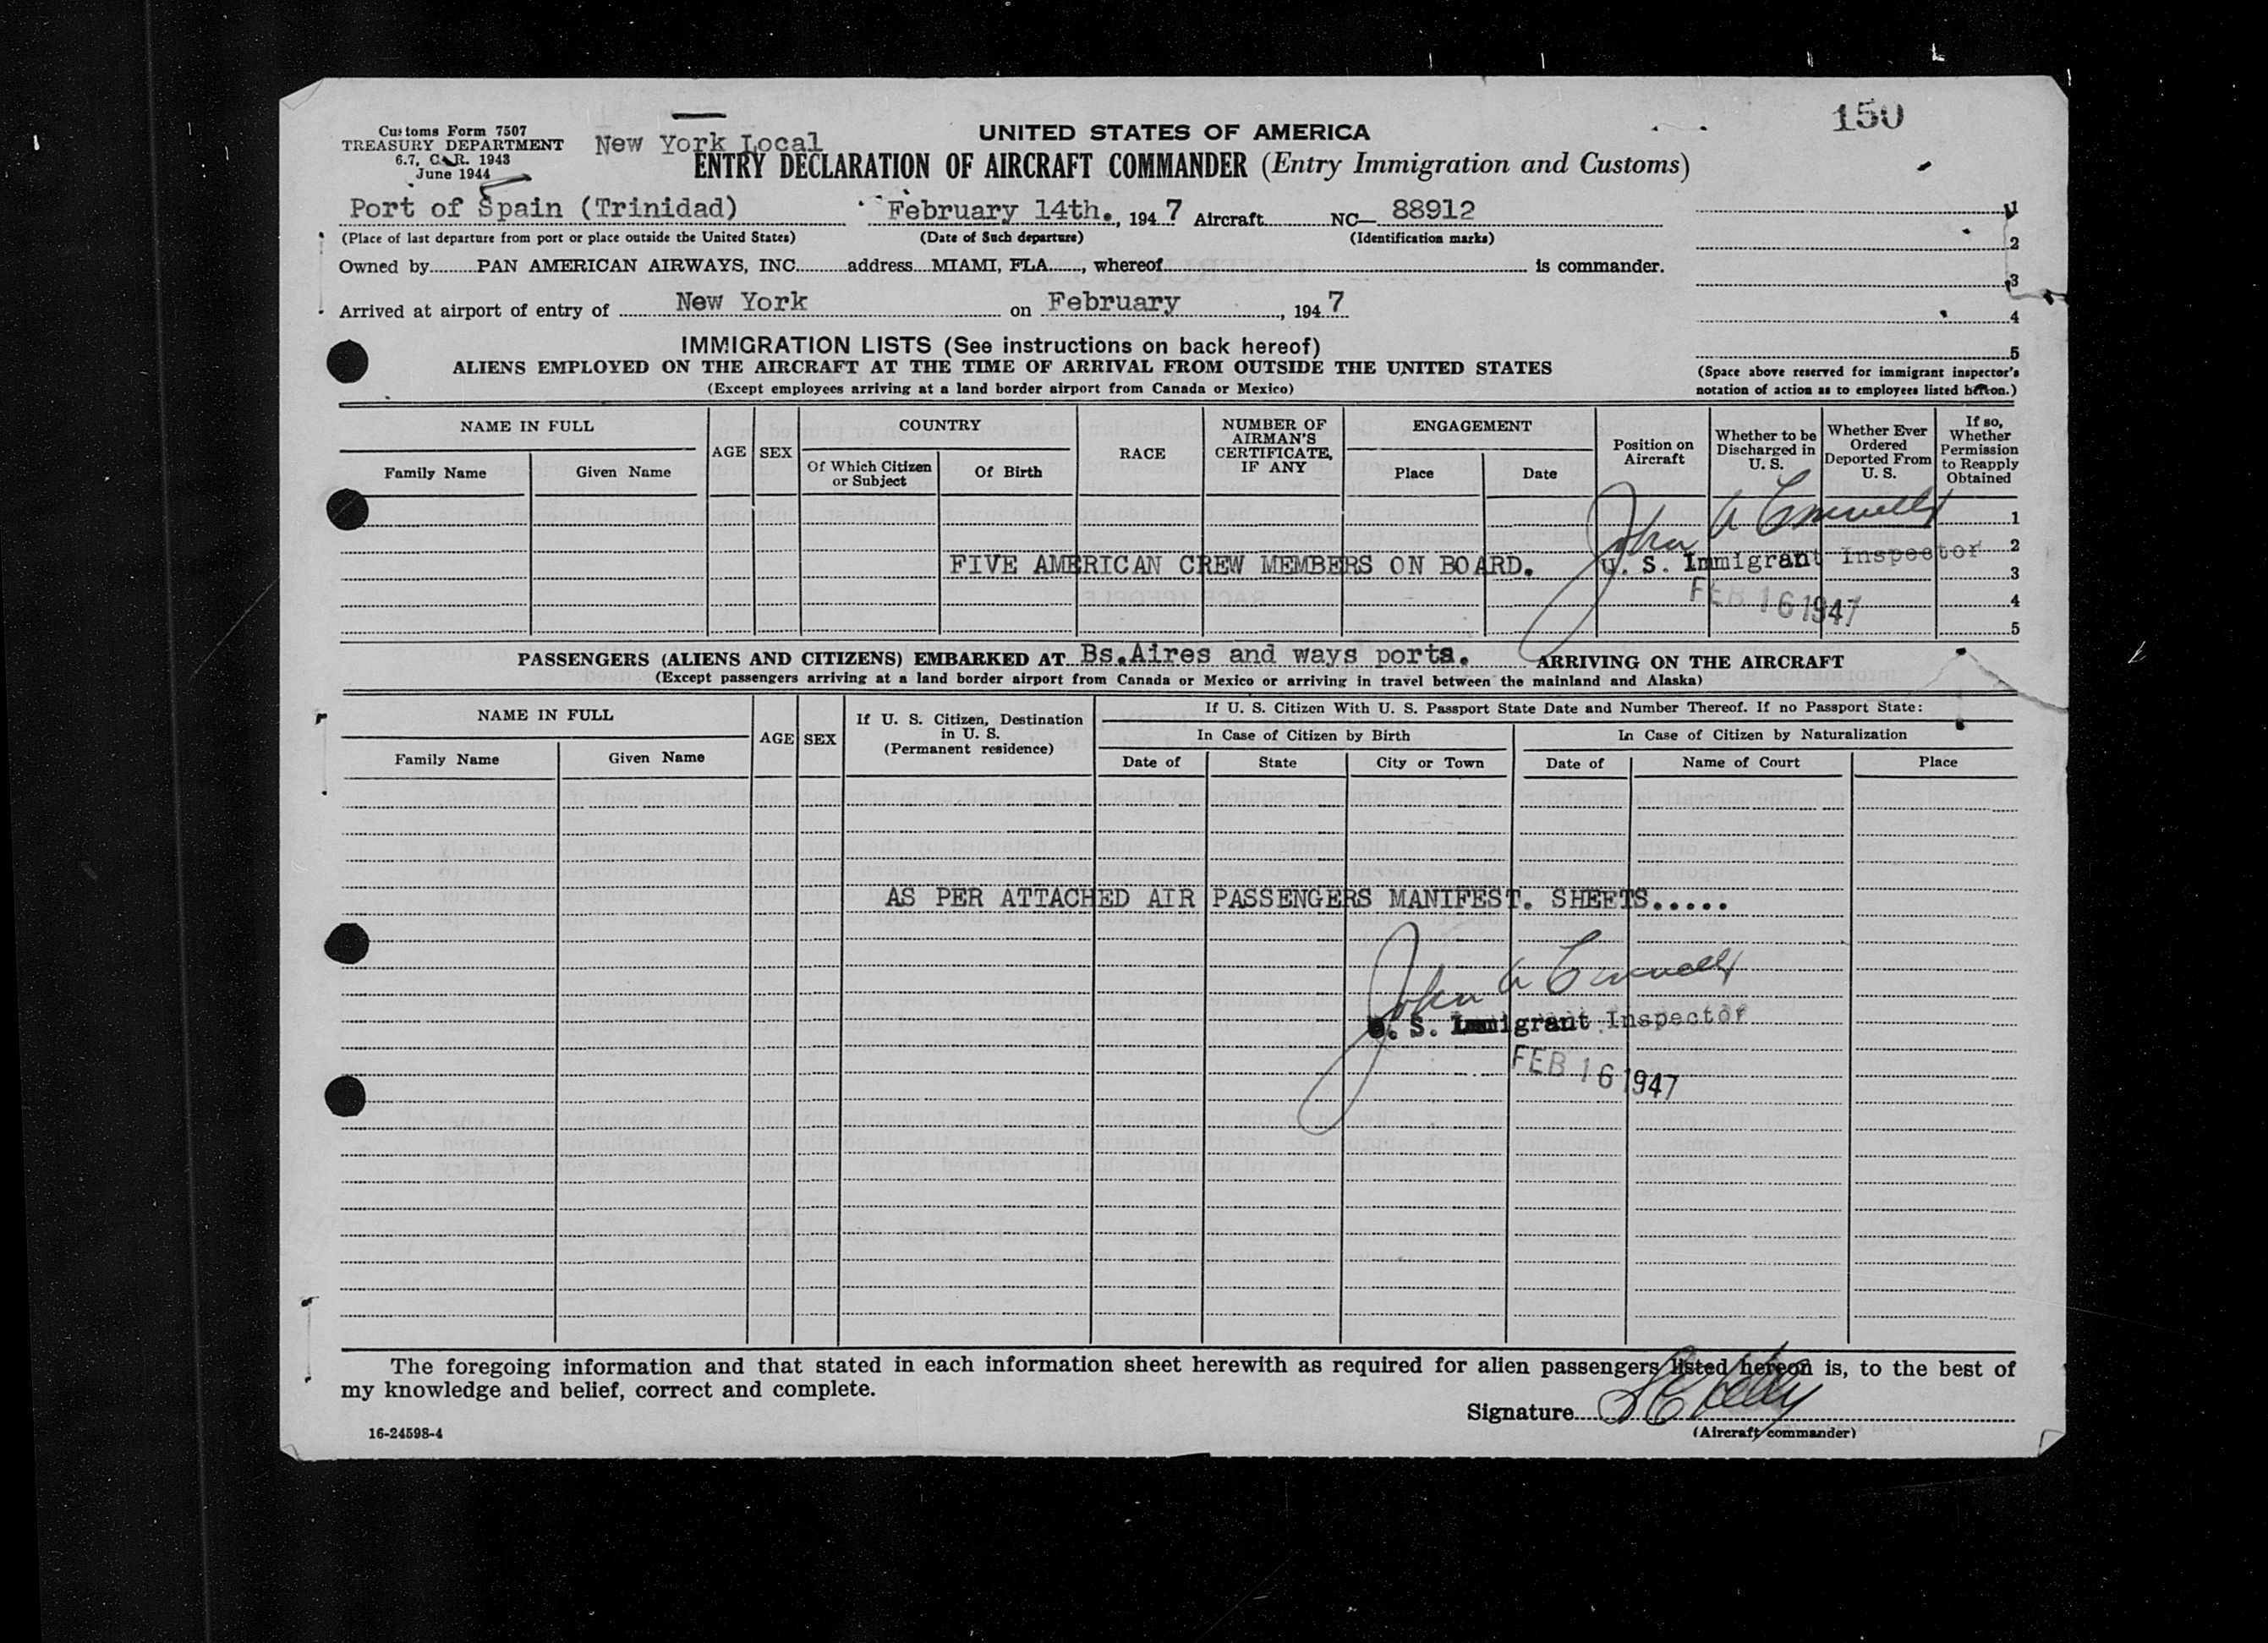 150
Customs Form 7507
TREASURY DEPARTMENT
6.7, C. R. 1943
June 1944
New York Local
UNITED STATES OF AMERICA
ENTRY DECLARATION OF AIRCRAFT COMMANDER (Entry Immigration and Customs)
Port of Spain (Trinidad) February 14th., 194 7 Aircraft NC— 88912
(Place of last departure from port or place outside the United States) (Date of Such departure) (Identification marks)
Owned by PAN AMERICAN AIRWAYS, INC. address MIAMI, FLA., whereof is commander.
Arrived at airport of entry of New York on February, 194 7
1
2
3
4
5
(Space above reserved for immigrant inspector's
notation of action as to employees listed hereon.)
IMMIGRATION LISTS (See instructions on back hereof)
ALIENS EMPLOYED ON THE AIRCRAFT AT THE TIME OF ARRIVAL FROM OUTSIDE THE UNITED STATES
(Except employees arriving at a land border airport from Canada or Mexico)
NAME IN FULL
Family Name Given Name
AGE SEX
COUNTRY
Of Which Citizen or Subject
Of Birth
RACE
NUMBER OF AIRMAN'S CERTIFICATE, IF ANY
ENGAGEMENT
Place Date
Position on Aircraft
Whether to be Discharged in U. S.
Whether Ever Ordered Deported From U. S.
If so, Whether Permission to Reapply Obtained
1
2
3
4
5
FIVE AMERICAN CREW MEMBERS ON BOARD.
John A Connelly
U. S. Immigrant Inspector
FEB 16 1947
PASSENGERS (ALIENS AND CITIZENS) EMBARKED AT Bs.Aires and ways ports. ARRIVING ON THE AIRCRAFT
(Except passengers arriving at a land border airport from Canada or Mexico or arriving in travel between the mainland and Alaska)
NAME IN FULL
Family Name Given Name
AGE SEX
If U. S. Citizen, Destination in U. S.
(Permanent residence)
If U. S. Citizen With U. S. Passport State Date and Number Thereof. If no Passport State:
In Case of Citizen by Birth In Case of Citizen by Naturalization
Date of State City or Town Date of Name of Court Place
AS PER ATTACHED AIR PASSENGERS MANIFEST. SHEETS.....
John A Connelly
U. S. Immigrant Inspector
FEB 16 1947
The foregoing information and that stated in each information sheet herewith as required for alien passengers listed hereon is, to the best of
my knowledge and belief, correct and complete.
Signature
(Aircraft commander)
16-24598-4